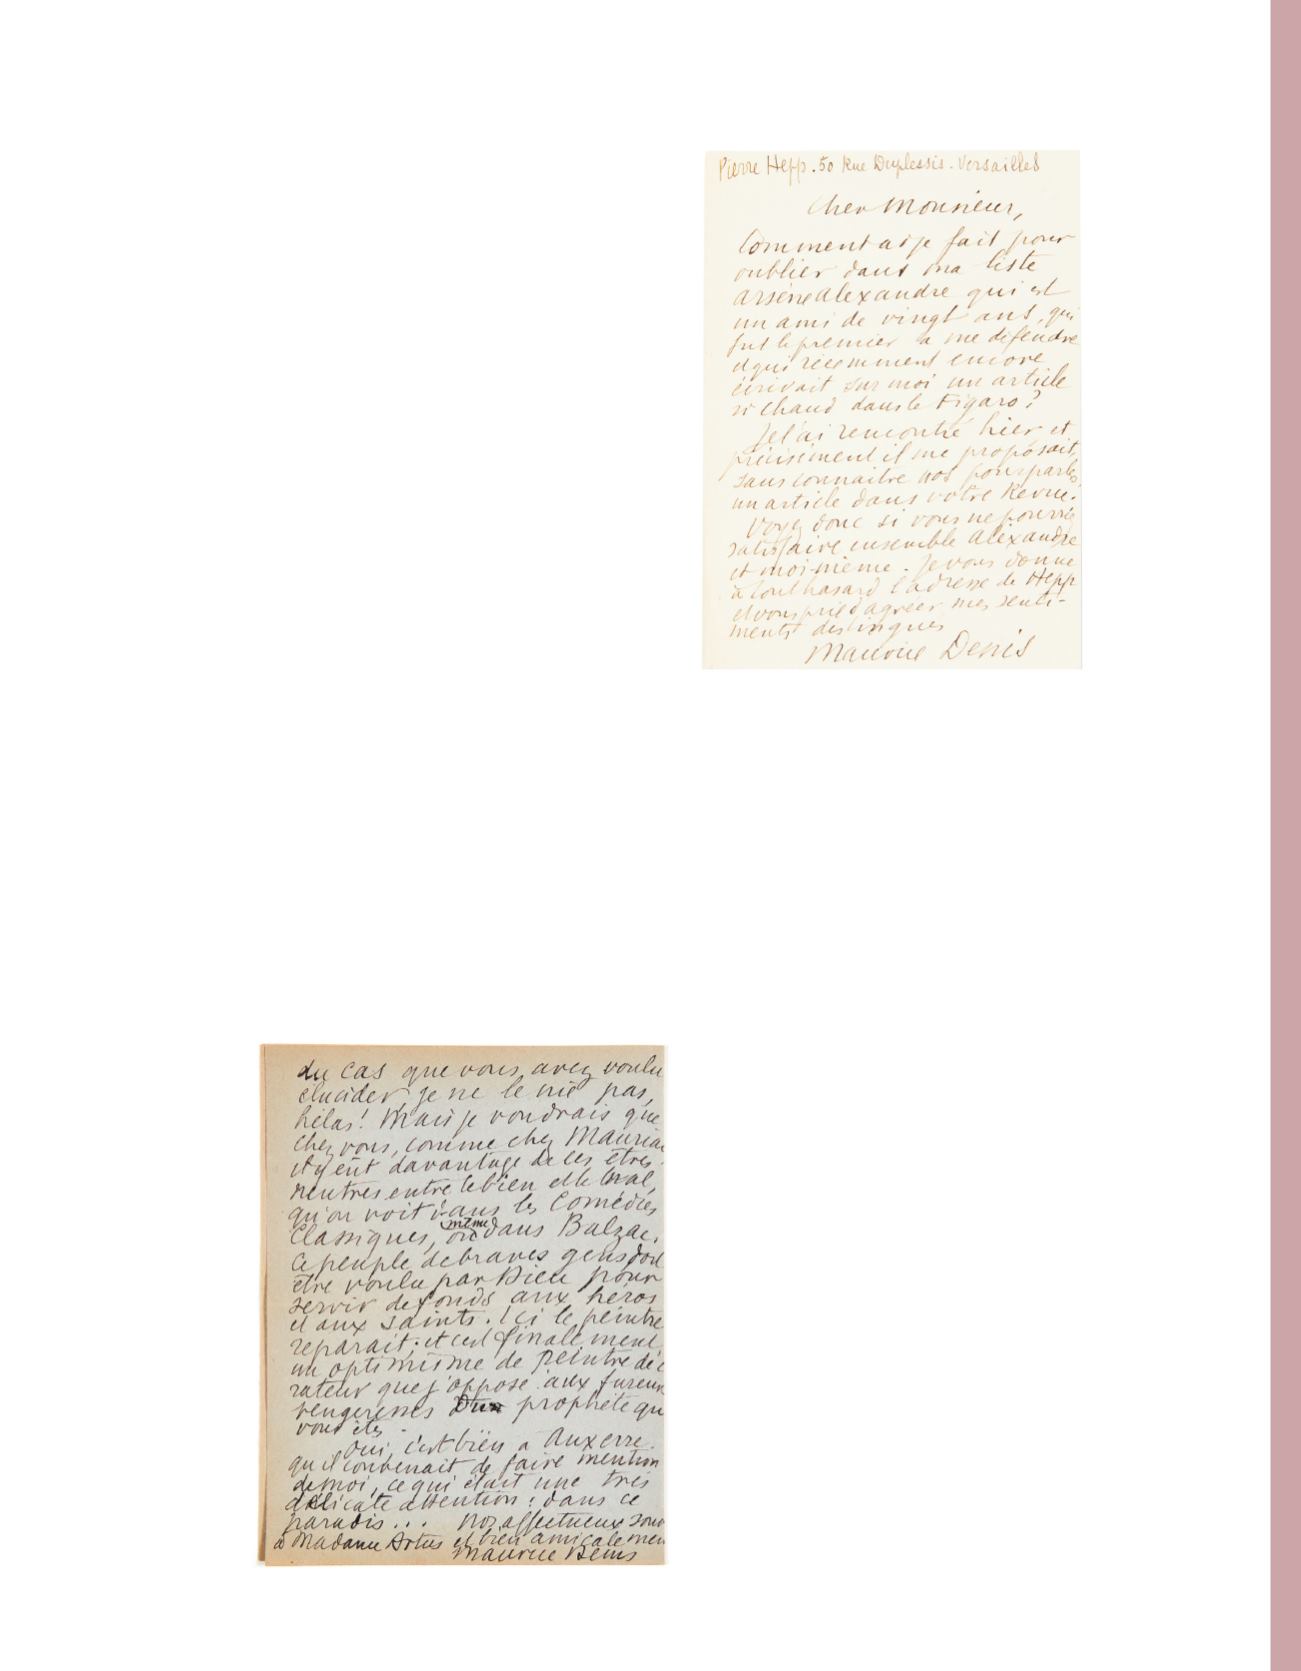 Pierre Hepp. 50 Rue Duplessis. Versailles
Cher Monsieur,
Comment ai je fait pour
oublier dans ma liste
Arsène Alexandre qui est
un ami de vingt ans, qui
fut le premier à me défendre
et qui récemment encore
écrivait sur moi un article
si chaud dans le Figaro?
Je l'ai rencontré hier et
précisément il me proposait,
sans connaître nos pourparlers,
un article dans votre Revue.
Voyez donc si vous ne pourriez
satisfaire ensemble Alexandre
et moi-même. Je vous donne
à tout hasard l'adresse de Hepp
et vous prie d'agréer mes senti-
ments distingués
Maurice Denis
du cas que vous avez voulu
élucider je ne le nie pas,
hélas! Mais je voudrais que
chez vous, comme chez Mauriac
il y eût davantage de ces êtres
neutres entre le bien et le mal,
qu'on voit dans les Comédies
Classiques, ou même dans Balzac.
Ce peuple de braves gens doit
être voulu par Dieu pour
servir de fonds aux héros
et aux saints. Ici le peintre
reparaît: et c'est finalement
un optimisme de peintre déco
rateur que j'oppose aux fureurs
vengeresses prophète que
vous êtes.
Oui, c'est bien à Auxerre
qu'il convenait de faire mention
de moi, ce qui était une très
délicate attention: dans ce
paradis... Nos affectueux souv
à Madame Artus et bien amicalemen
Maurice Denis